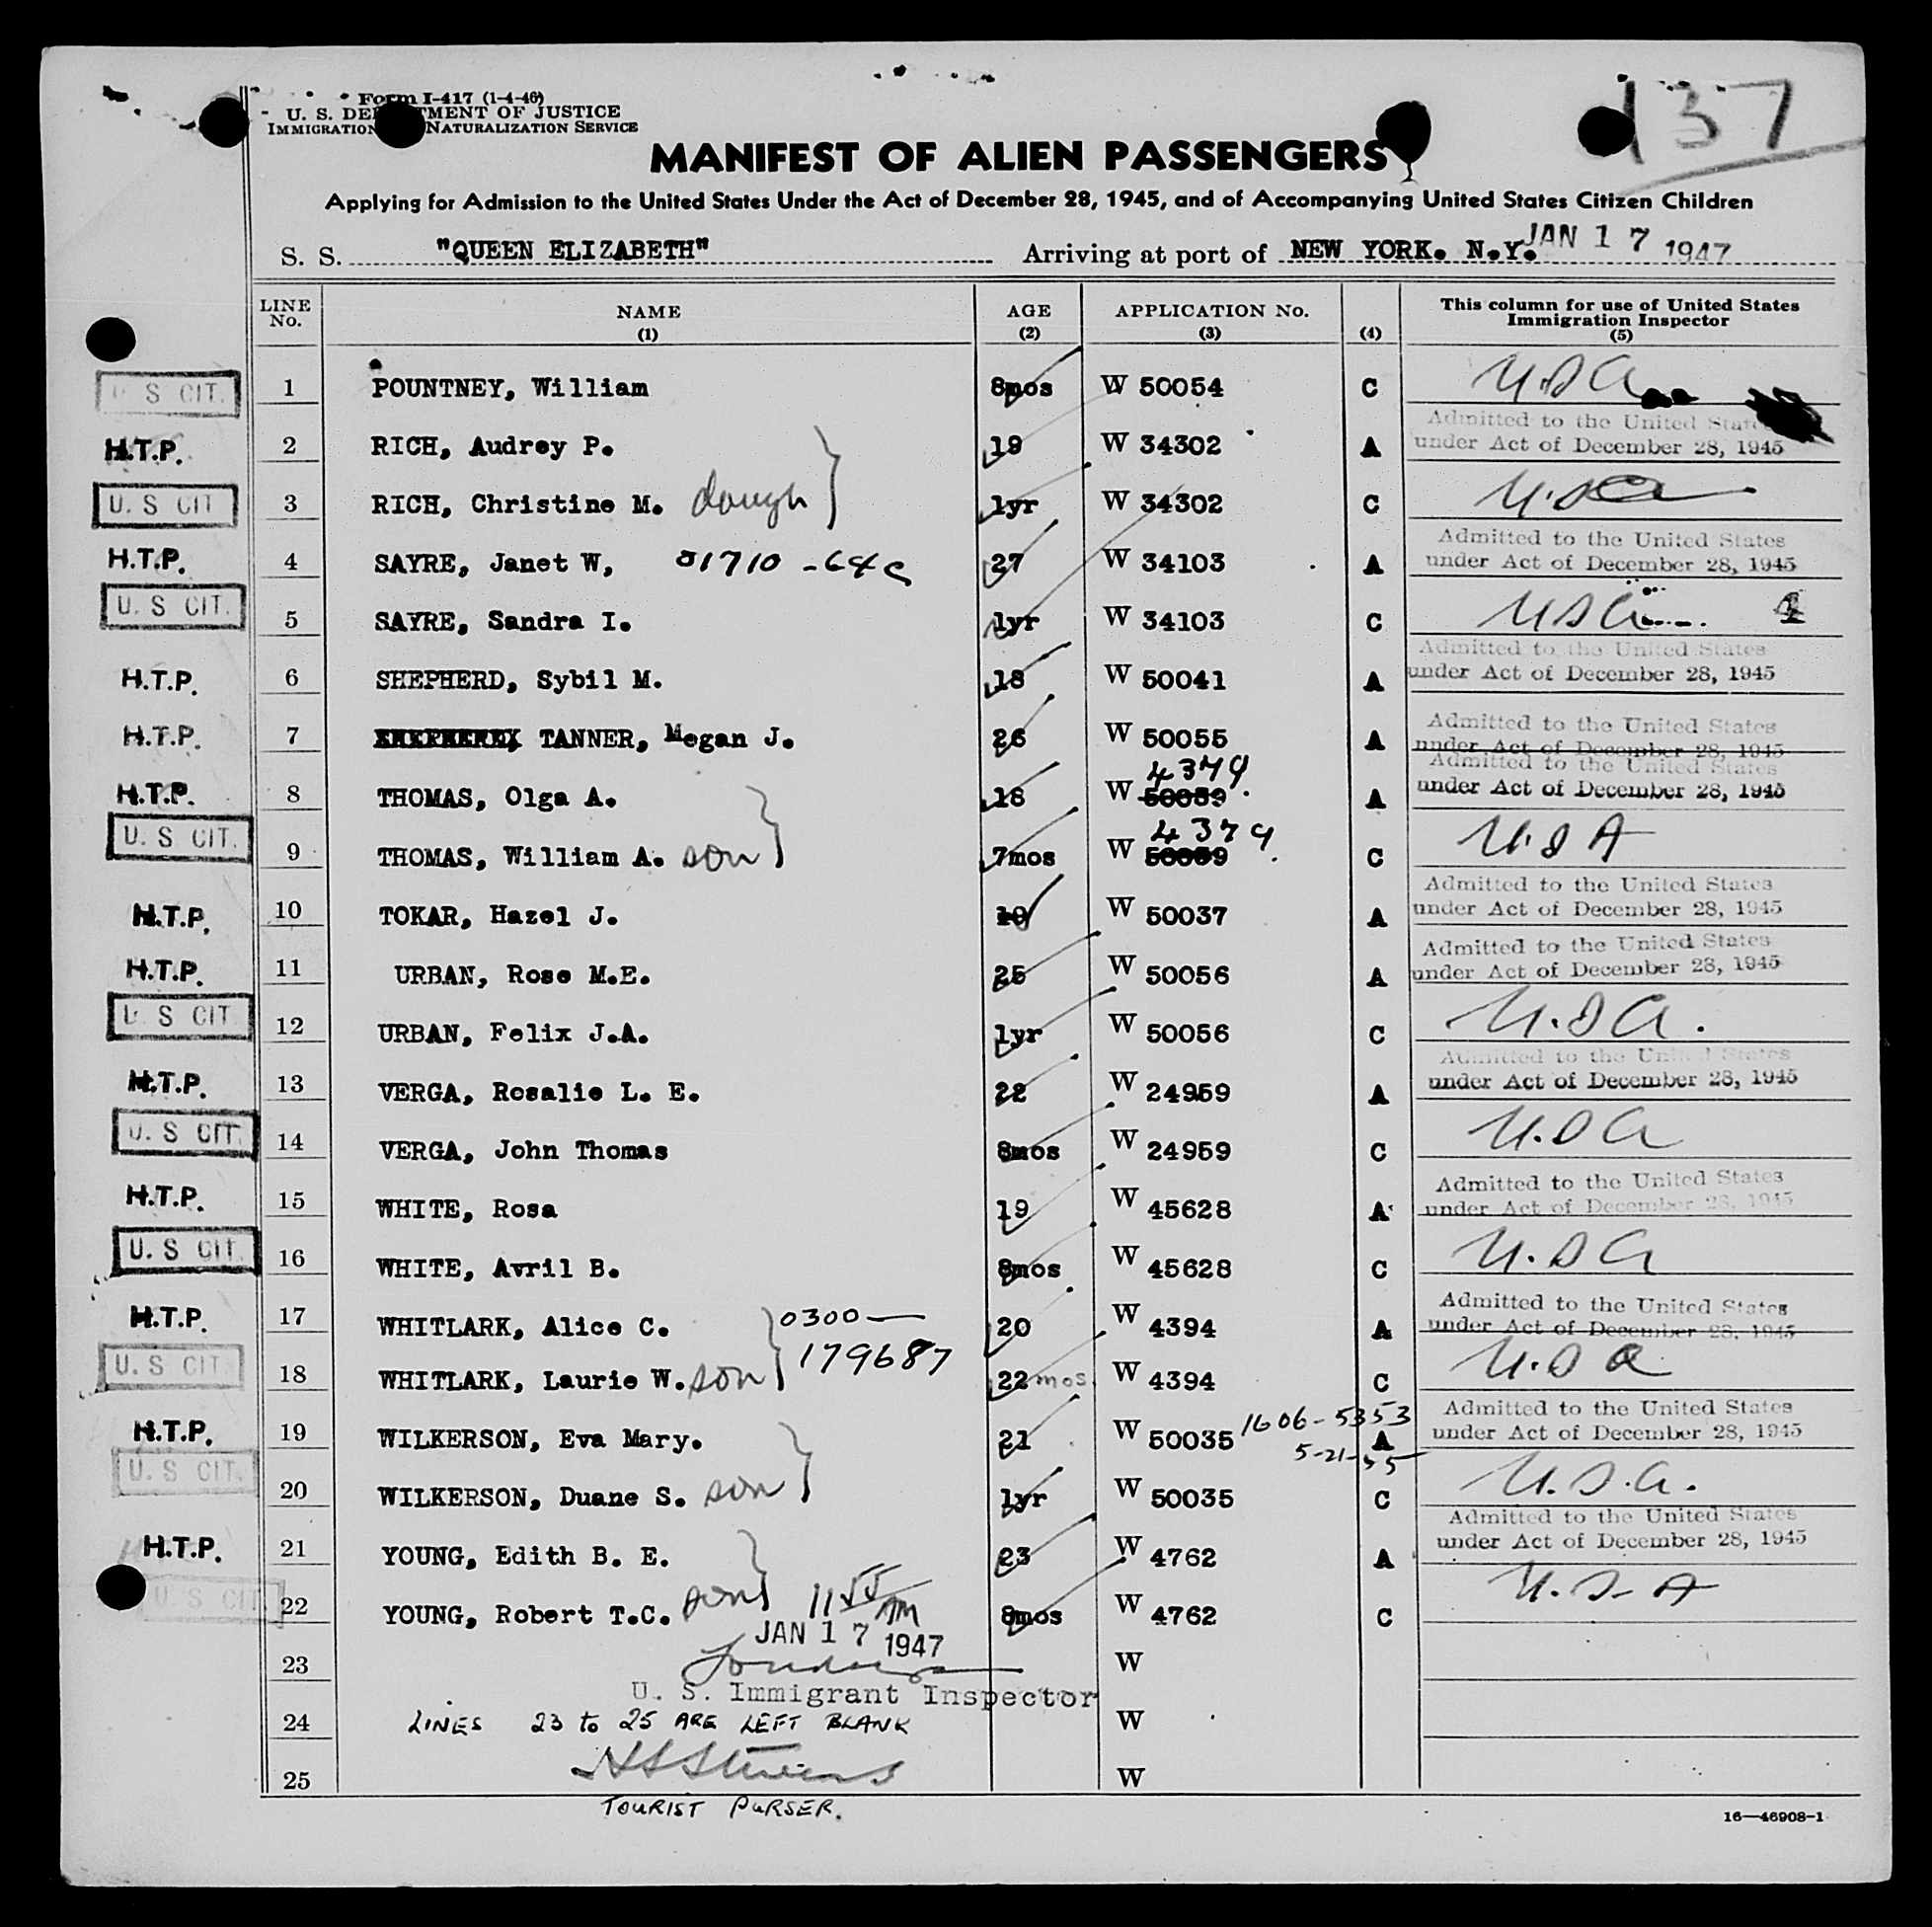 Form I-417 (1-4-46)
U. S. DE TMENT OF JUSTICE
IMMIGRATION NATURALIZATION SERVICE
137
MANIFEST OF ALIEN PASSENGERS
Applying for Admission to the United States Under the Act of December 28, 1945, and of Accompanying United States Citizen Children
S. S. "QUEEN ELIZABETH" Arriving at port of NEW YORK. N.Y. JAN 17 1947
LINE No. NAME (1) AGE (2) APPLICATION No. (3) (4) This column for use of United States Immigration Inspector (5)
U S CIT. 1 POUNTNEY, William 8mos W 50054 C U.S.A.
H.T.P. 2 RICH, Audrey P. 19 W 34302 A Admitted to the United States under Act of December 28, 1945
U. S CIT 3 RICH, Christine M. daugh 1yr W 34302 C U.S.A
H.T.P. 4 SAYRE, Janet W, 01710-64c 27 W 34103 A Admitted to the United States under Act of December 28, 1945
U. S CIT. 5 SAYRE, Sandra I. 1yr W 34103 C U S A
H.T.P. 6 SHEPHERD, Sybil M. 18 W 50041 A Admitted to the United States under Act of December 28, 1945
H.T.P. 7 TANNER, Megan J. 26 W 50055 A Admitted to the United States under Act of December 28, 1945
H.T.P. 8 THOMAS, Olga A. 18 W 50059 4379 A Admitted to the United States under Act of December 28, 1945
U. S CIT. 9 THOMAS, William A. son 7mos W 50059 4379 C U.S A
H.T.P. 10 TOKAR, Hazel J. 19 W 50037 A Admitted to the United States under Act of December 28, 1945
H.T.P. 11 URBAN, Rose M.E. 25 W 50056 A Admitted to the United States under Act of December 28, 1945
U. S CIT 12 URBAN, Felix J.A. 1yr W 50056 C U.S A.
H.T.P. 13 VERGA, Rosalie L. E. 22 W 24959 A Admitted to the United States under Act of December 28, 1945
U. S CIT. 14 VERGA, John Thomas 8mos W 24959 C U.S A
H.T.P. 15 WHITE, Rosa 19 W 45628 A Admitted to the United States under Act of December 28, 1945
U. S CIT. 16 WHITE, Avril B. 8mos W 45628 C U.S A
H.T.P. 17 WHITLARK, Alice C. 0300— 20 W 4394 A Admitted to the United States under Act of December 28, 1945
U. S CIT. 18 WHITLARK, Laurie W. son 179687 22 mos. W 4394 C U.S A
H.T.P. 19 WILKERSON, Eva Mary. 21 W 50035 1606-5353 5-21-55 A Admitted to the United States under Act of December 28, 1945
U. S CIT. 20 WILKERSON, Duane S. son 1yr W 50035 C U.S.A.
H.T.P. 21 YOUNG, Edith B. E. 23 W 4762 A Admitted to the United States under Act of December 28, 1945
U. S CIT 22 YOUNG, Robert T.C. son 8mos W 4762 C U.S A
1155 AM
JAN 17 1947
23 W
U. S. Immigrant Inspector
24 LINES 23 to 25 ARE LEFT BLANK W
25 W
TOURIST PURSER.
16—46908-1